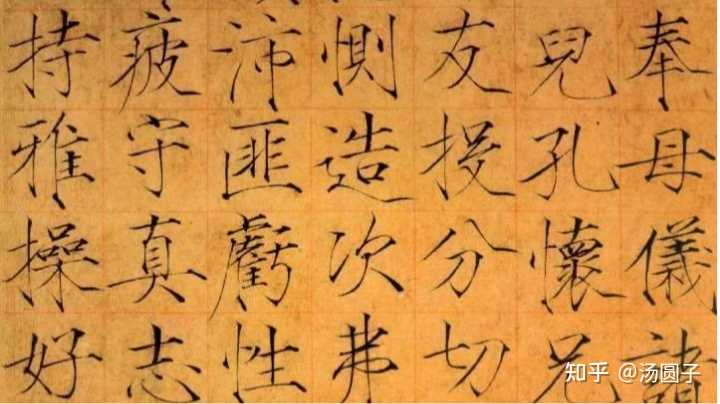 奉母儀諸
兒孔懷兄
友投分切
惻造次弗
沛匪虧性
疲守真志
持雅操好
知乎 @汤圆子